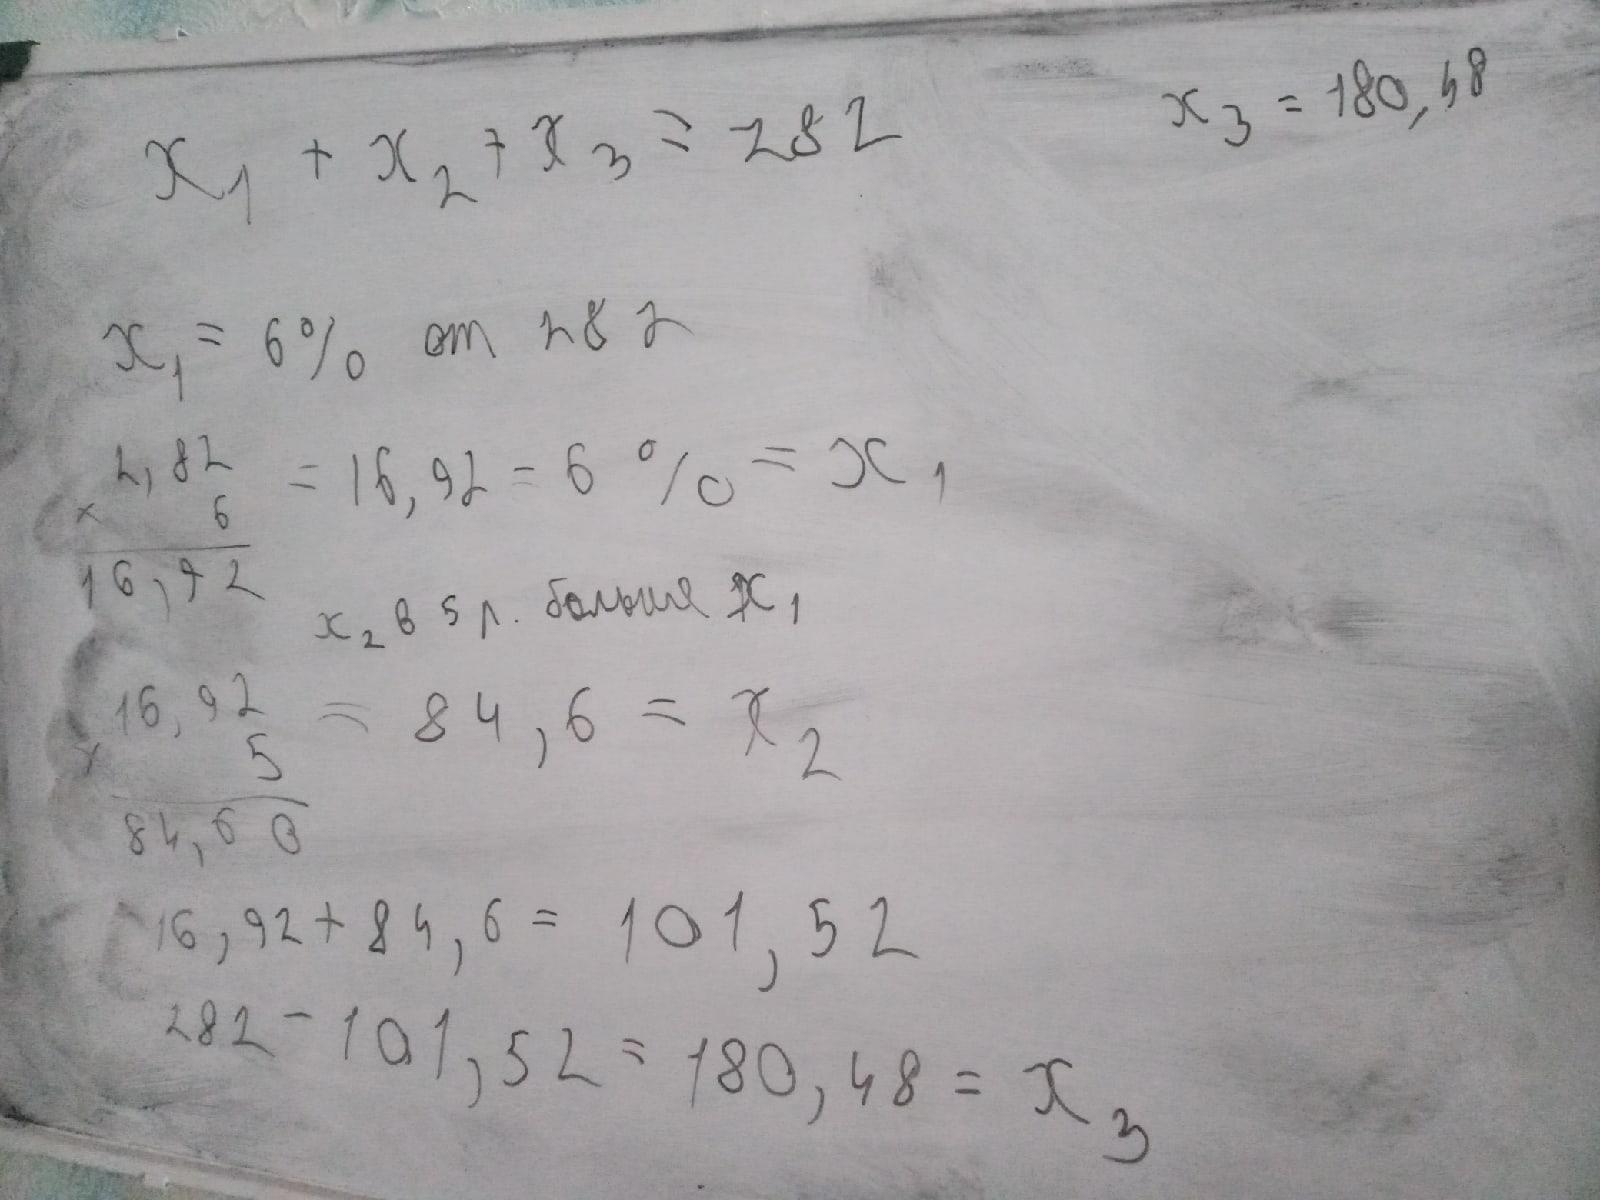 x₁ + x₂ + x₃ = 282
x₃ = 180,48
x₁ = 6% от 282
2,82
× 6
16,92
= 16,92 = 6 % = x₁
x₂ в 5 р. больше x₁
16,92
× 5
84,60
= 84,6 = x₂
16,92 + 84,6 = 101,52
282 - 101,52 = 180,48 = x₃